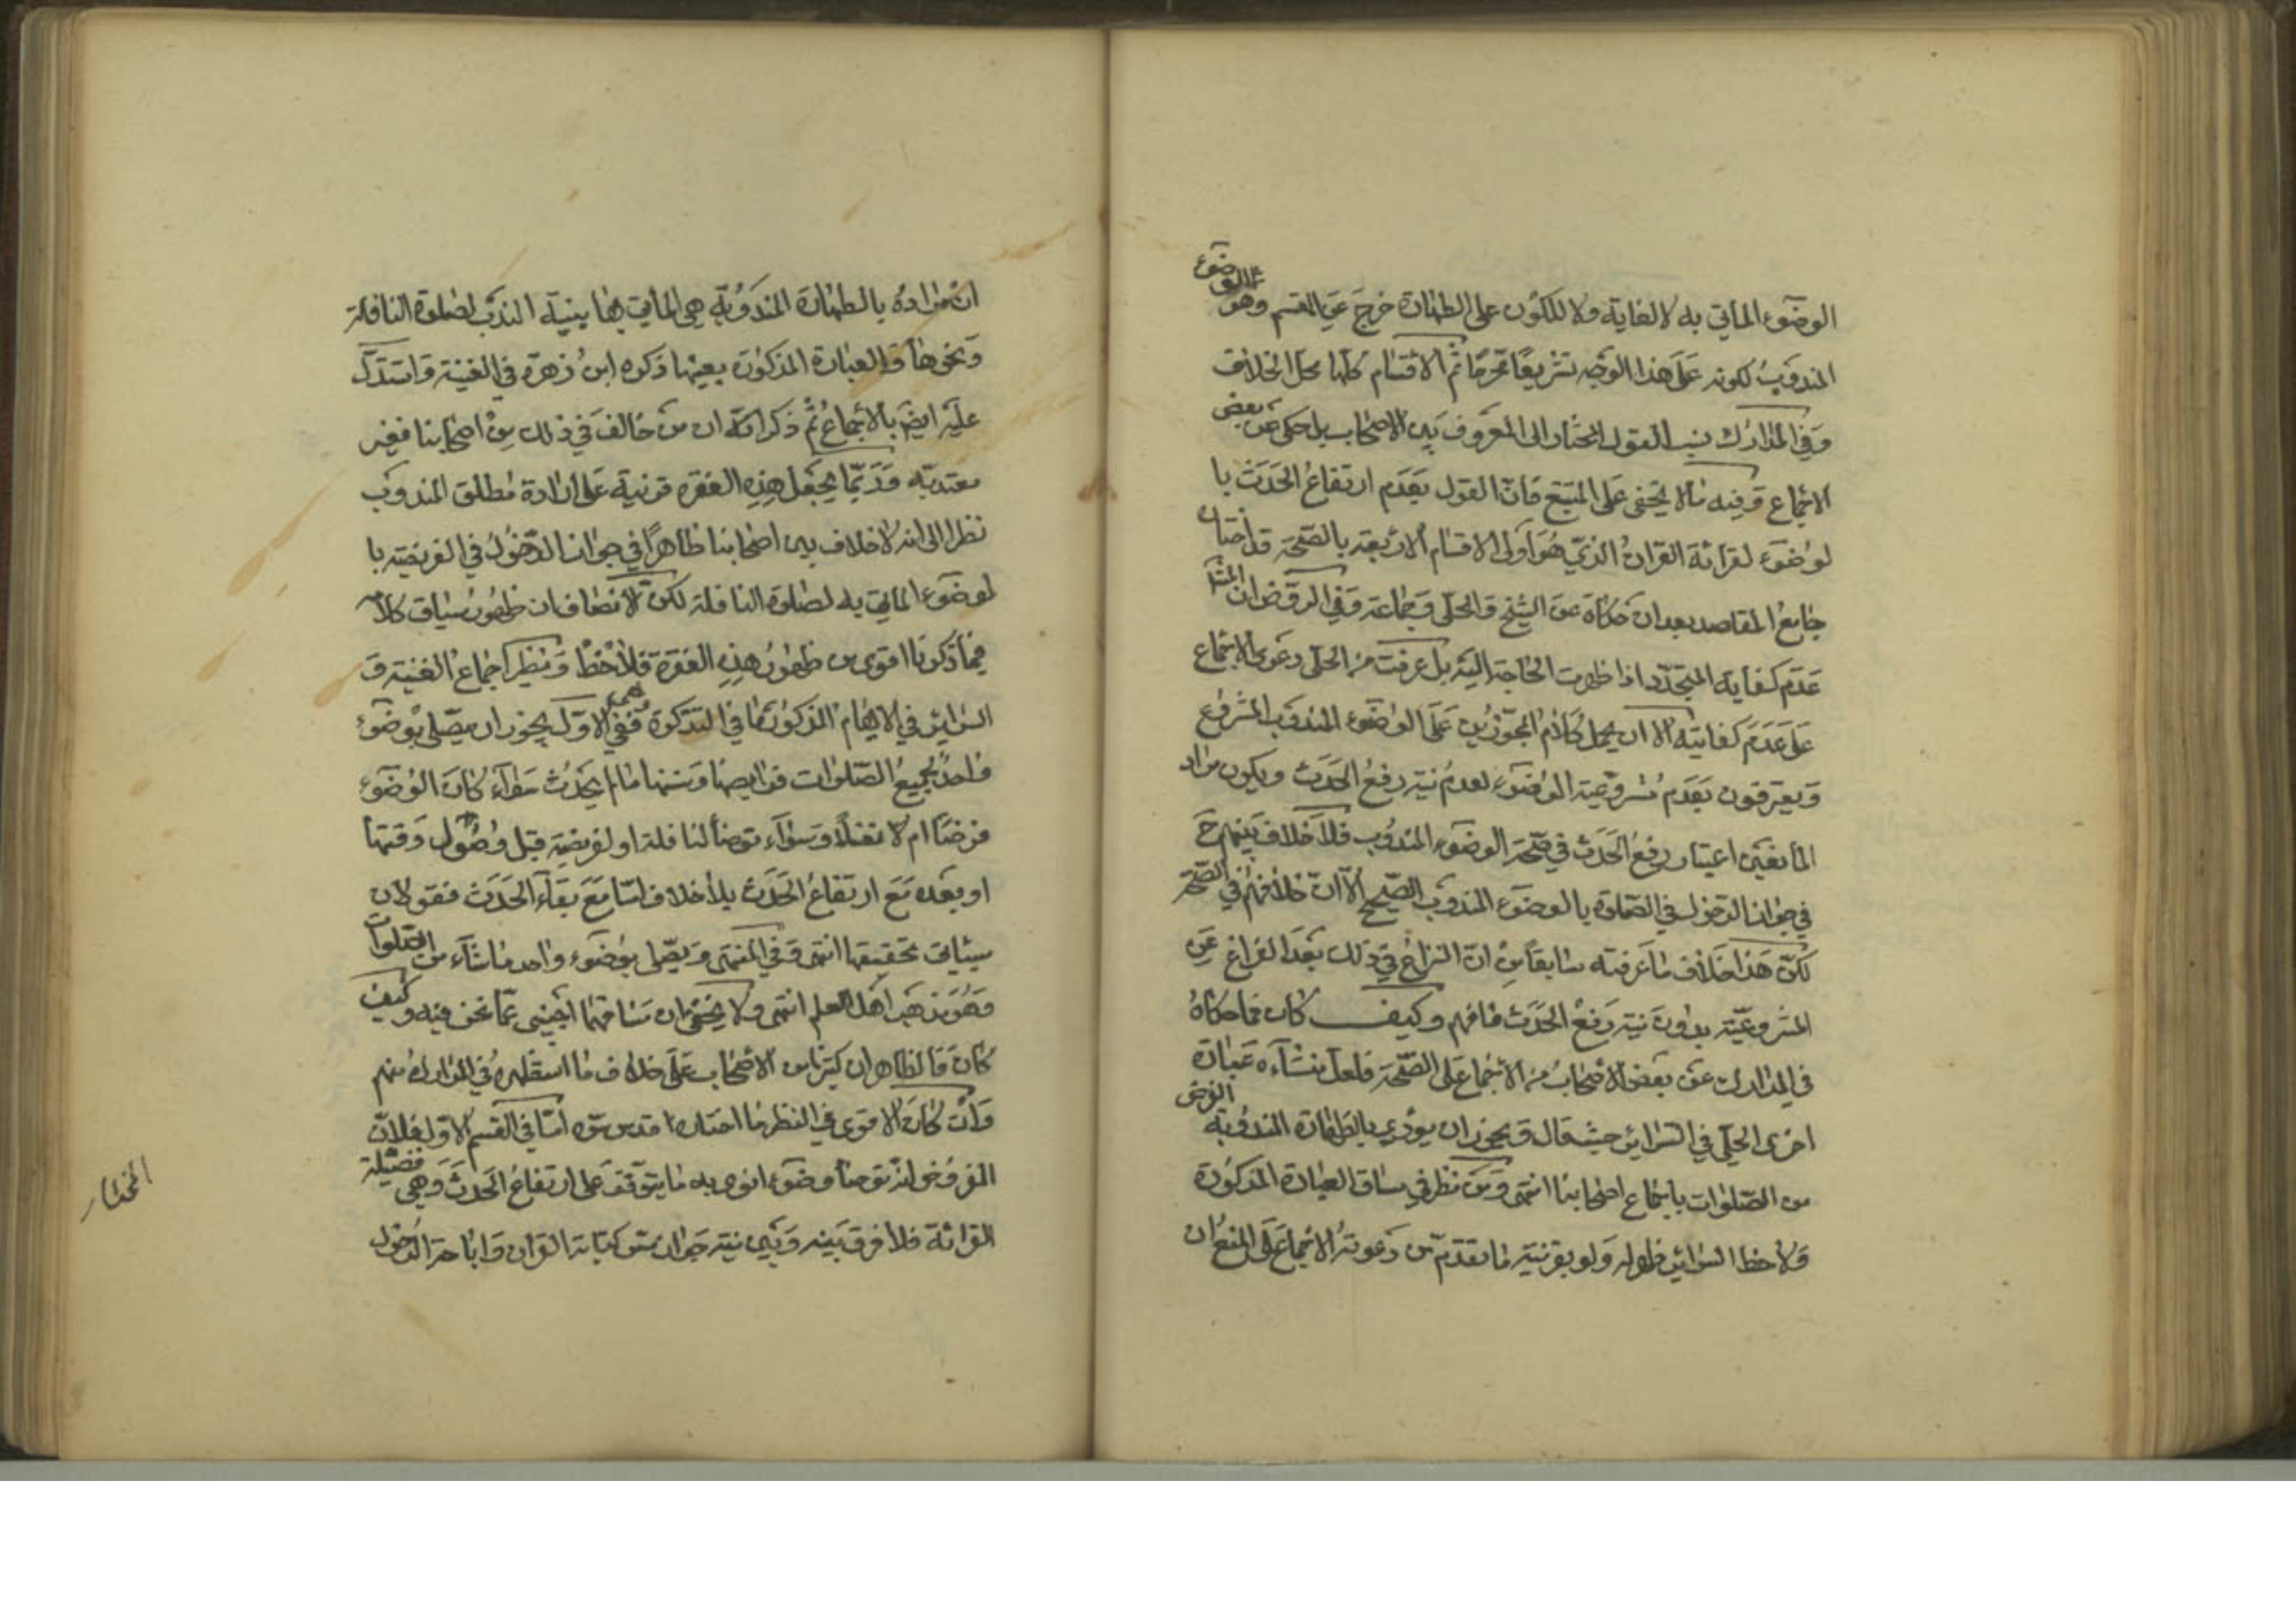 الوضوء المأتي به لا لغاية ولا للكون على الطهارة خرج عن المقسم وهو الوضوء
المندوب لكونه على هذا الوجه تشريعا محرما ثم الاقسام كلها محل الخلاف
وفي المدارك نسب القول المختار الى المعروف بين الاصحاب بل حكى عن بعض
الاجماع وفيه ما لا يخفى على المتتبع فان القول بعدم ارتفاع الحدث با
لوضوء لقرائة القران الذي هو اولى الاقسام الاربعة بالصحة قد اختار
جامع المقاصد بعد ان حكاه عن الشيخ والحلي وجماعة وفي الروض ان
عدم كفاية المتجدد اذا ظهرت الحاجة اليه بل عرفت من الحلي دعوى الاجماع
على عدم كفايته الا ان يحمل كلام المجوزين على الوضوء المندوب المشروع
ويعترفون بعدم مشروعية الوضوء لعدم نية رفع الحدث ويكون مراد
المانعين اعتبار رفع الحدث في صحة الوضوء المندوب فلا خلاف بينهم ح
في جواز الدخول في الصلوة بالوضوء المندوب الصحيح الا ان خلافهم في الصحة
لكن هذا خلاف ما عرفته سابقا من ان النزاع في ذلك بعد الفراغ عن
المشروعية بدون نية رفع الحدث فافهم وكيف كان فما حكاه
في المدارك عن بعض الاصحاب من الاجماع على الصحة فلعل منشاءه عبارة
اخرى الحلي في السرائر حيث قال ويجوز ان يؤدي بالطهارة المندوبة الفرض
من الصلوات باجماع اصحابنا انتهى ومن نظر في سياق العبارة المذكورة
ولاحظ السرائر ولو بقرنية ما تقدم من دعوته الاجماع على المنع ان
ان مراده بالطهارة المندوبة هي المأتي بها بنية الندب لصلوة النافلة
ونحوها والعبارة المذكورة بعينها ذكره ابن زهرة في الغنية واستدل
عليه ايضا بالاجماع ثم ذكر انه ان من خالف في ذلك من اصحابنا فغير
معتد به وربما يجعل هذه الفقرة قرنية على ارادة مطلق المندوب
نظرا الى انه لا خلاف بين اصحابنا ظاهرا في جواز الدخول في الفريضة با
لوضوء المأتي به لصلوة النافلة لكن الانصاف ان ظهور سياق كلامه
فيما ذكرنا اقوى من ظهور هذه الفقرة فلاحظ ونظير اجماع الغنية و
السرائر في الابهام المذكور ما في التذكرة ففي الاول يجوز ان يصلى بوضوء
واحد جميع الصلوات فرايضها وسننها ما لم يحدث سواء كان الوضوء
فرضا ام لا نفلا وسواء توضأ لنافلة او لفريضة قبل وقتها
او بعده مع ارتفاع الحدث بلا خلاف اما مع بقاء الحدث فقولان
سيأتي تحقيقها انتهى وفي المنتهى ويصلى بوضوء واحد ما شاء من الصلوات
وهو مذهب اهل العلم انتهى ولا يخفى ان مساقهما اجنبي عما نحن فيه وكيف
كان فالظاهر ان كثيرا من الاصحاب على خلاف ما استظهره في المدارك منهم
وان كان الاقوى في النظر ما اختاره قدس سره اما في القسم الاول فلان
المفروض انه توضأ وضوء انوى به ما يتوقف على ارتفاع الحدث وهي فضيلة
القرائة فلا فرق بينه وبين نية جواز مس كتابة القران واباحة الدخول
المختار